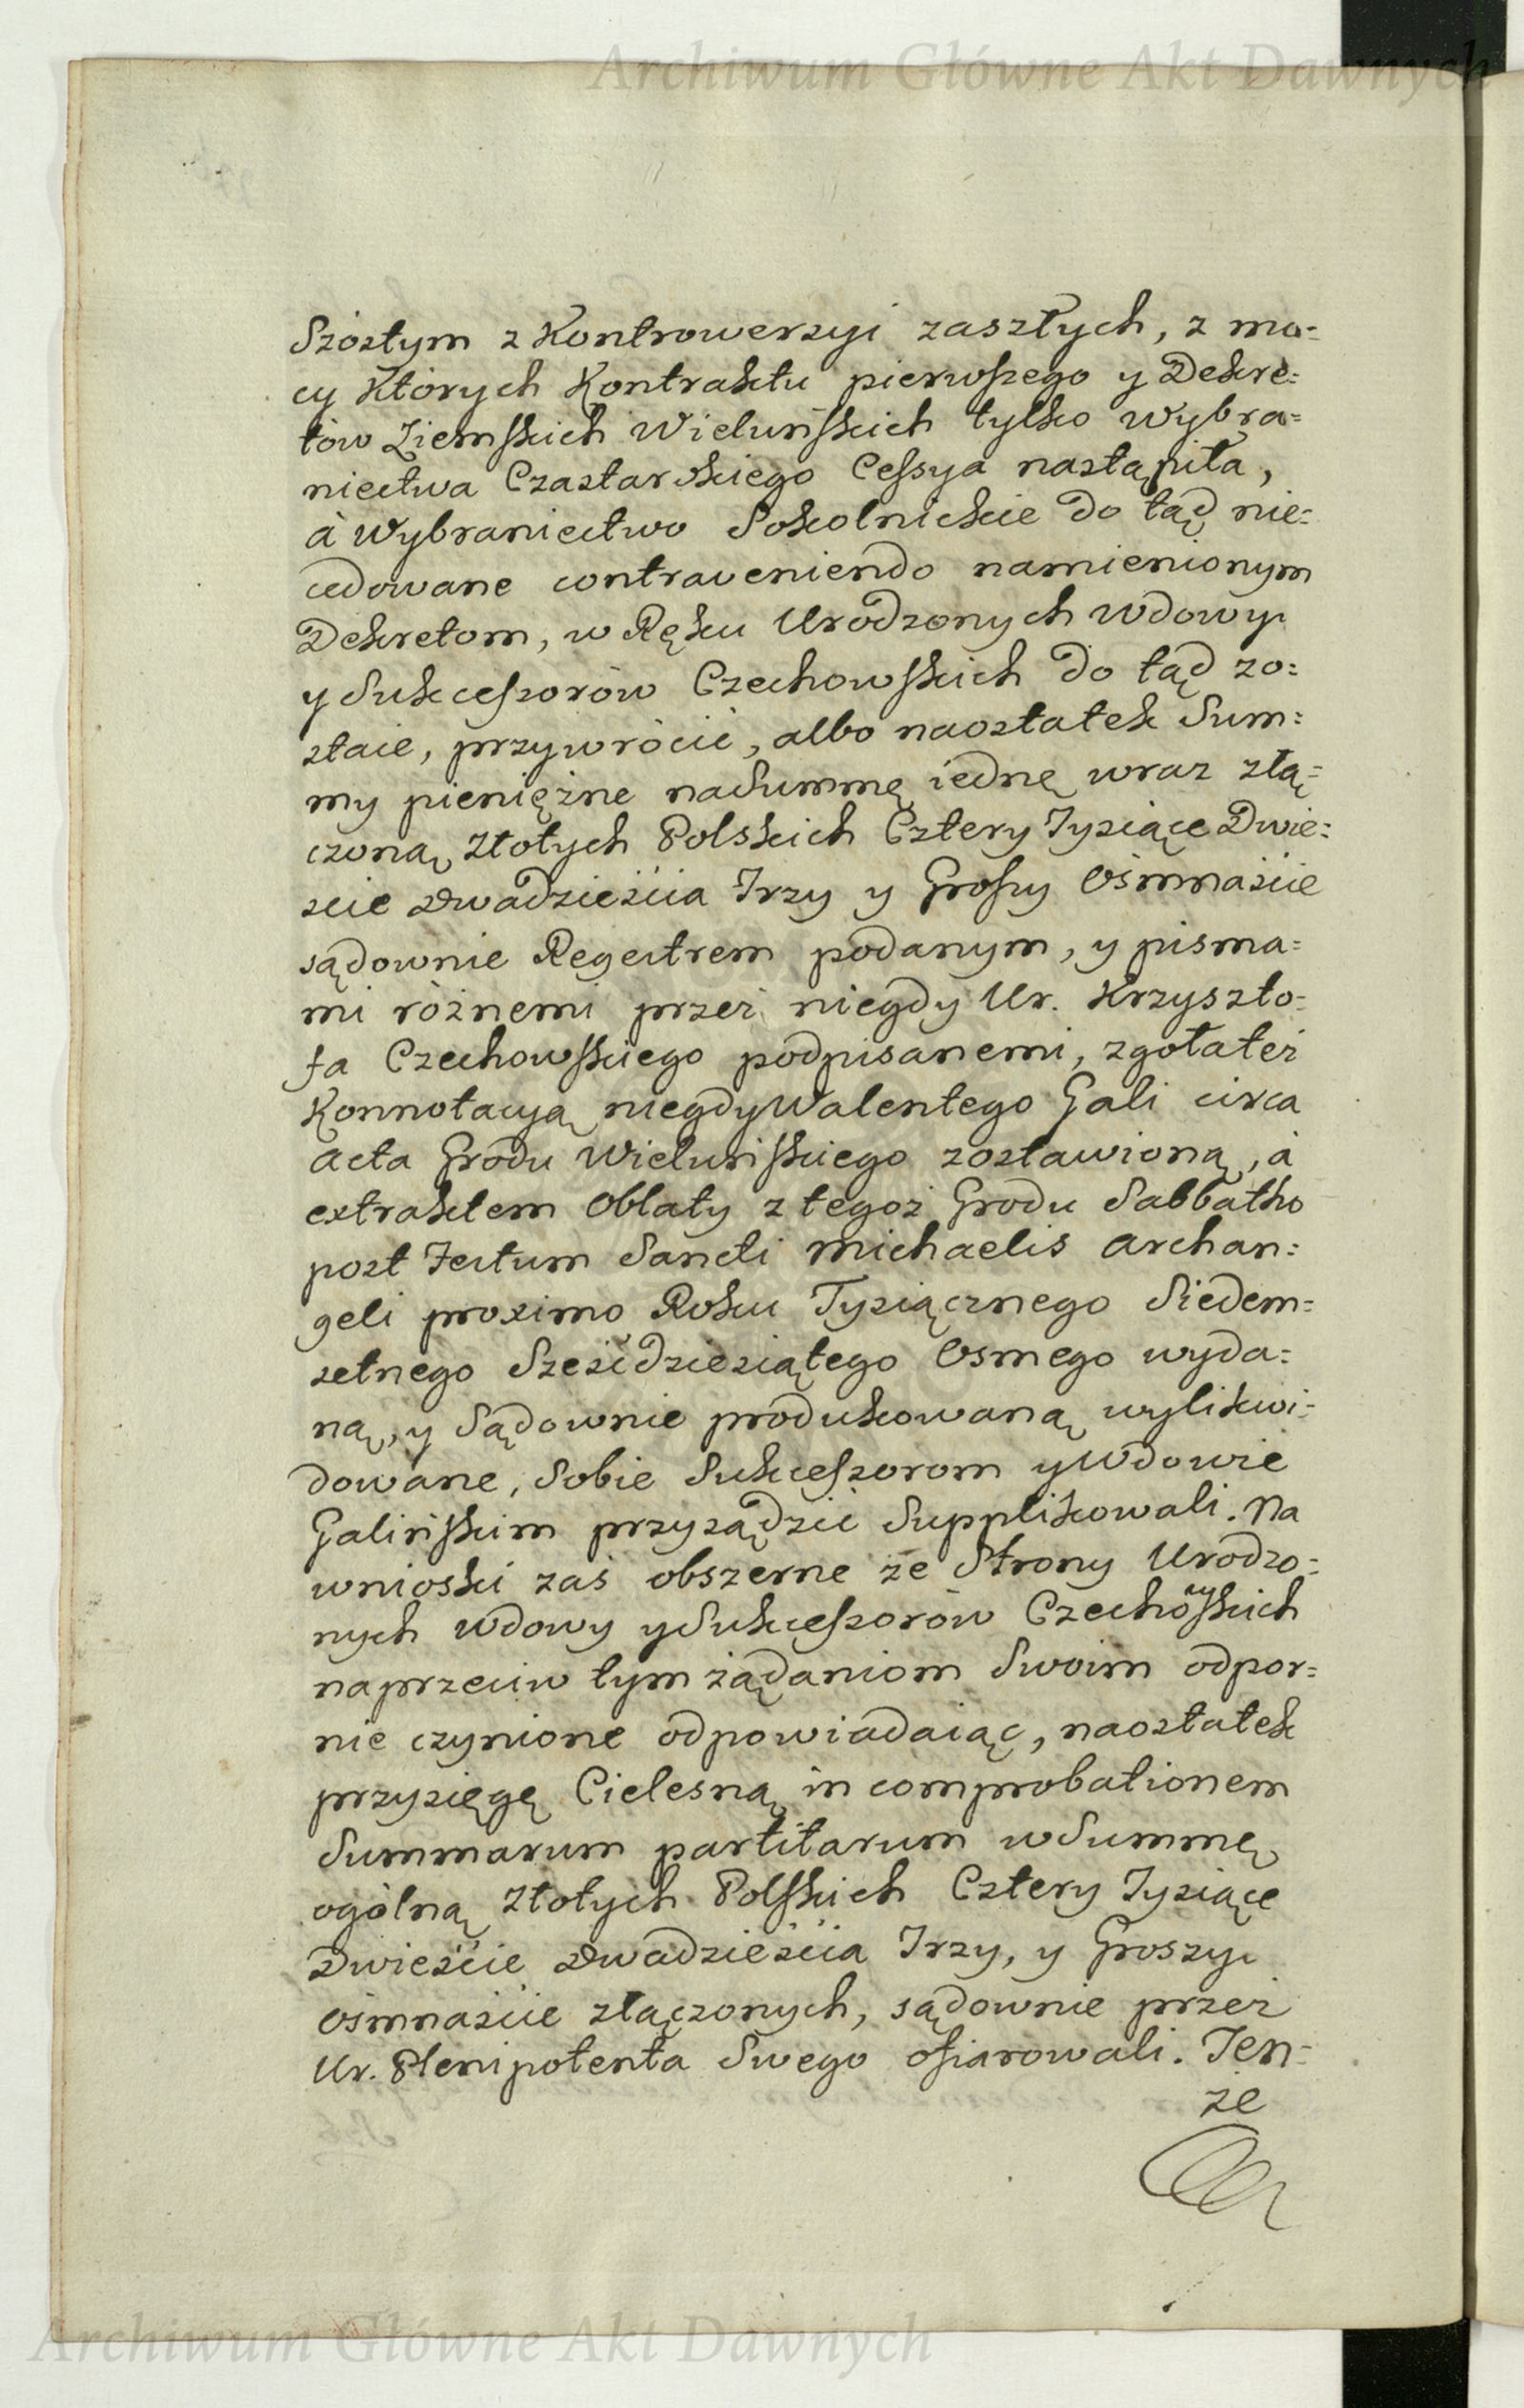 Archiwum Główne Akt Dawnych
Szóstym z Kontrowersyi zaszłych, z mo=
cy Których Kontraktu pierwszego y Dekre=
tów Ziemskich Wieluńskich tylko Wybra=
niectwa Czastarskiego Cessya nastąpiła,
à Wybraniectwo Sokolnickie do tąd nie=
cedowane contraveniendo namienionym
Dekretom, w Ręku Urodzonych Wdowy
y Sukcessorów Czechowskich do tąd zo=
staie, przywrócić, albo naostatek Sum=
my pieniężne na Summę iednę wraz złą=
czoną Złotych Polskich Cztery Tysiące Dwie=
scie dwadzieścia Trzy y Groszy Ośmnaście
sądownie Regestrem podanym, y pisma=
mi różnemi przez niegdy Ur. Krzyszto=
fa Czechowskiego podpisanemi, zgoła też
Konnotacyą niegdy Walentego Gali circa
acta Grodu Wieluńskiego zostawioną, à
extraktem Oblaty z tegoż Grodu Sabbatho
post Festum Sancti Michaelis Archan=
geli proximo Roku Tysiącznego Siedem=
setnego Sześćdziesiątego Osmego wyda=
ną, y Sądownie produkowaną wylikwi=
dowane, Sobie Sukcessorom y Wdowie
Galińskim przysądzić Supplikowali. Na
wnioski zaś obszerne ze Strony Urodzo=
nych Wdowy y Sukcessorów Czechowskich
naprzeciw tym żądaniom Swoim odpor=
nie czynione odpowiadaiąc, naostatek
przysięgę Cielesną in comprobationem
Summarum partitarum w Summę
ogólną Złotych Polskich Cztery Tysiące
Dwieście dwadzieścia Trzy, y Groszy
Ośmnaście złączonych, sądownie przez
Ur. Plenipotenta Swego ofiarowali. Ten=
że
Archiwum Główne Akt Dawnych